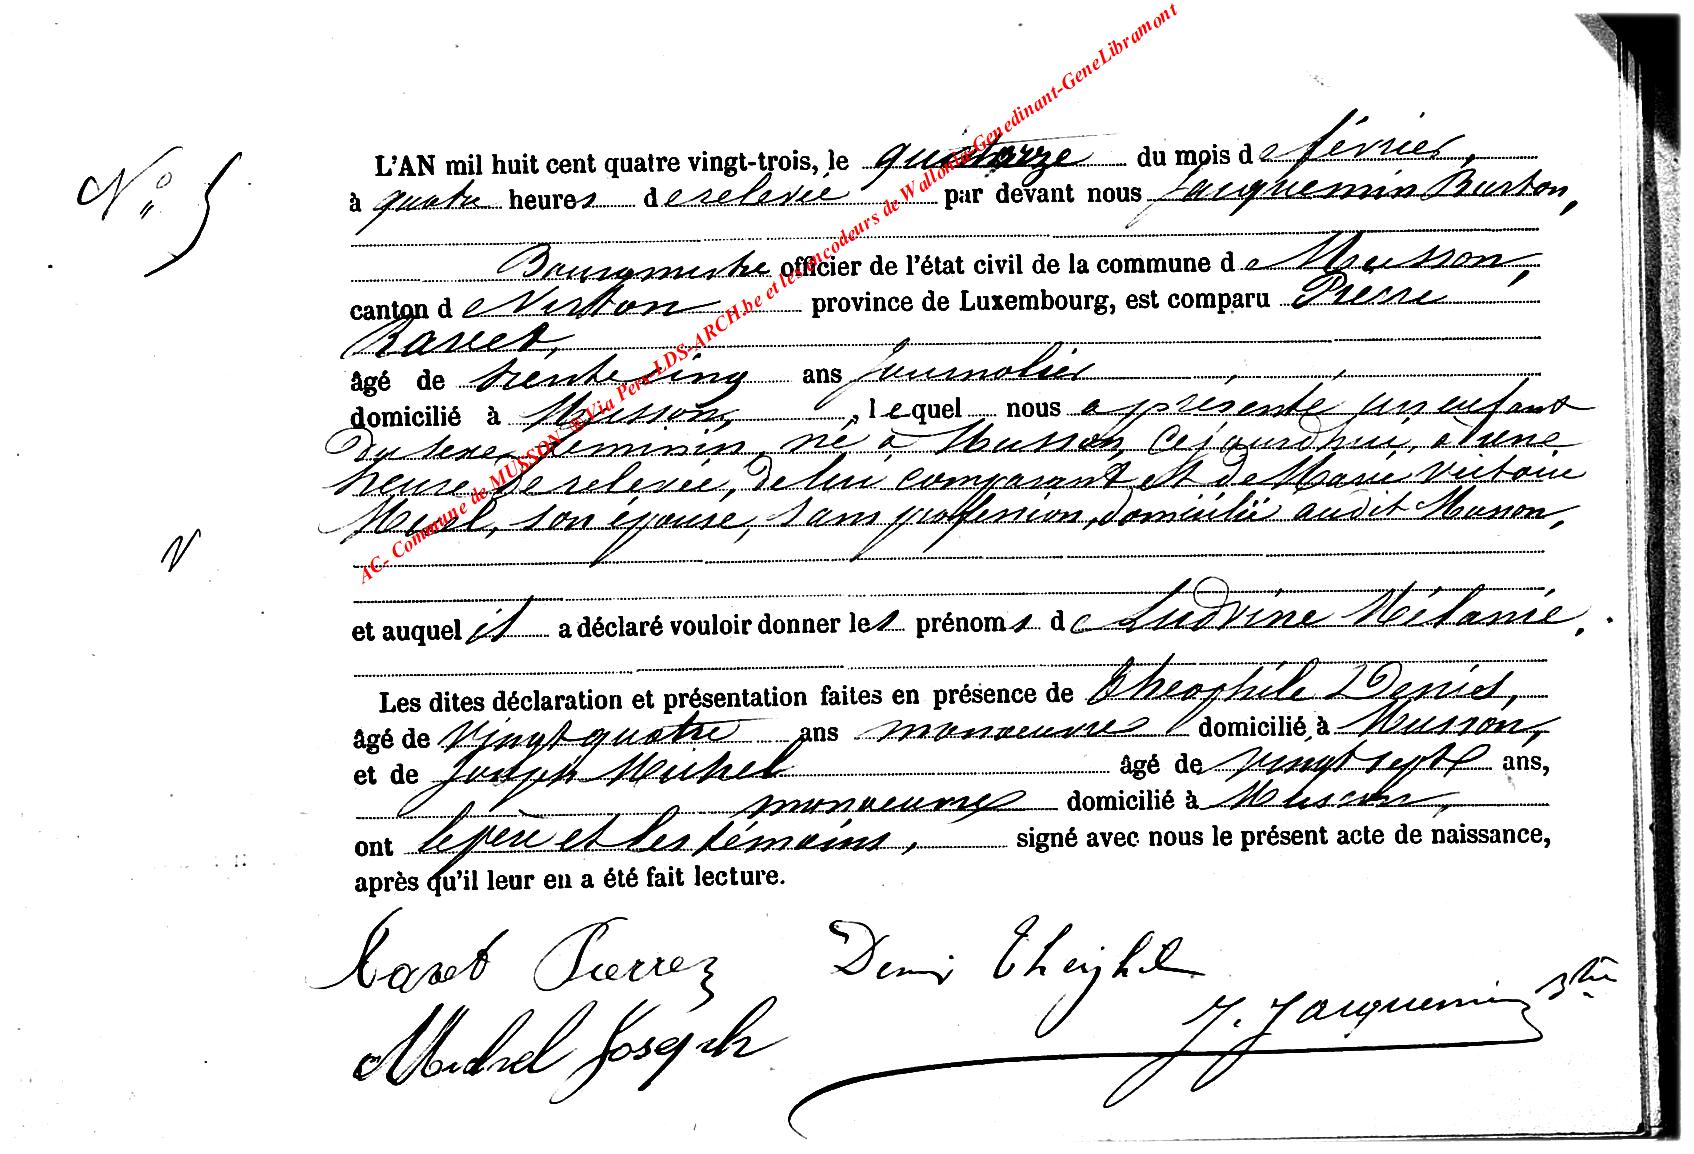 N° 5
L'AN mil huit cent quatre vingt-trois, le quatorze du mois de février,
à quatre heures de relevée par devant nous Jacquemin Burton,
Bourgmestre officier de l'état civil de la commune de Musson,
canton de Virton province de Luxembourg, est comparu Pierre
Raret,
âgé de trente cinq ans journalier
domicilié à Musson, , lequel nous a présenté un enfant
du sexe féminin, né à Musson, cejourd'hui, à une
heure de relevée, de lui comparant et de Marie Victoire
son épouse, sans profession, domiciliée audit Musson,
V
et auquel il a déclaré vouloir donner les prénoms de Ludvine Mélanie.
Les dites déclaration et présentation faites en présence de Théophile Denis,
âgé de vingt quatre ans manoeuvre domicilié à Musson,
et de Joseph Michel âgé de vingt sept ans,
manoeuvre domicilié à Musson,
ont le père et les témoins, signé avec nous le présent acte de naissance,
après qu'il leur en a été fait lecture.
Raret Pierre Denis Théophile
Michel Joseph J. Jacquemin Btre
AC- Commune de MUSSON Via Pere-LDS-ARCH.be et les encodeurs de Wallonia-Genedinant-GeneLibramont